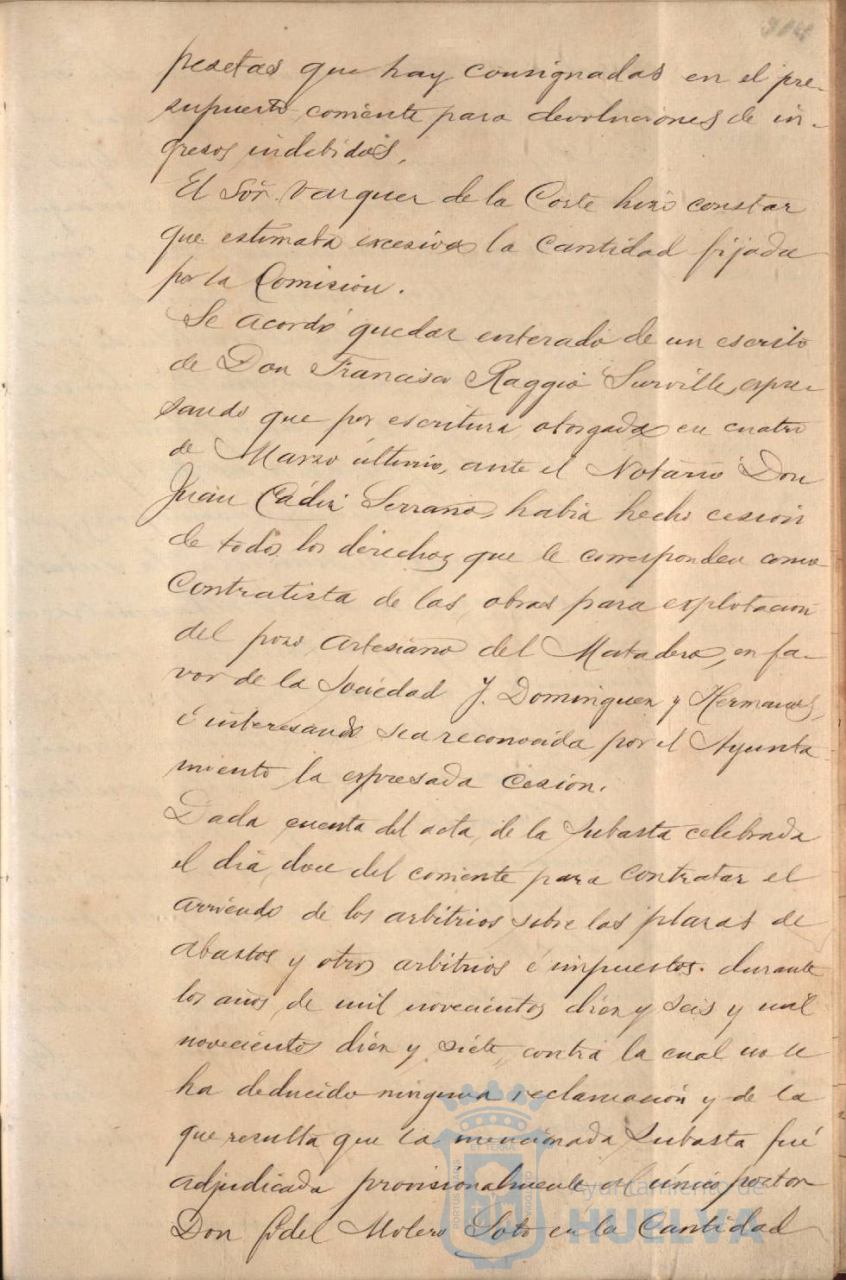 314
pesetas que hay consignadas en el pre-
supuesto corriente para devoluciones de in-
gresos indebidos.
El Sor. Vazquez de la Corte hizo constar
que estimaba excesiva la cantidad fijada
por la Comisión.
Se acordó quedar enterado de un escrito
de Don Francisco Raggio Surville, expre-
sando que por escritura otorgada en cuatro
de Marzo último, ante el Notario Don
Juan Cádiz Serrano, habia hecho cesión
de todos los derechos que le corresponden como
Contratista de las obras para explotación
del pozo artesiano del Matadero, en fa-
vor de la Sociedad J. Dominguez y Hermanos,
é interesando sea reconocida por el Ayunta
miento la expresada cesión.
Dada cuenta del acta de la subasta celebrada
el dia doce del corriente para contratar el
arriendo de los arbitrios sobre las plazas de
abastos y otros arbitrios é impuestos durante
los años de mil novecientos diez y seis y mil
novecientos diez y siete, contra la cual no se
ha deducido ninguna reclamación y de la
que resulta que la mencionada subasta fué
adjudicada provisionalmente al único postor
Don Fidel Molero Soto en la Cantidad
Ayuntamiento de
HUELVA